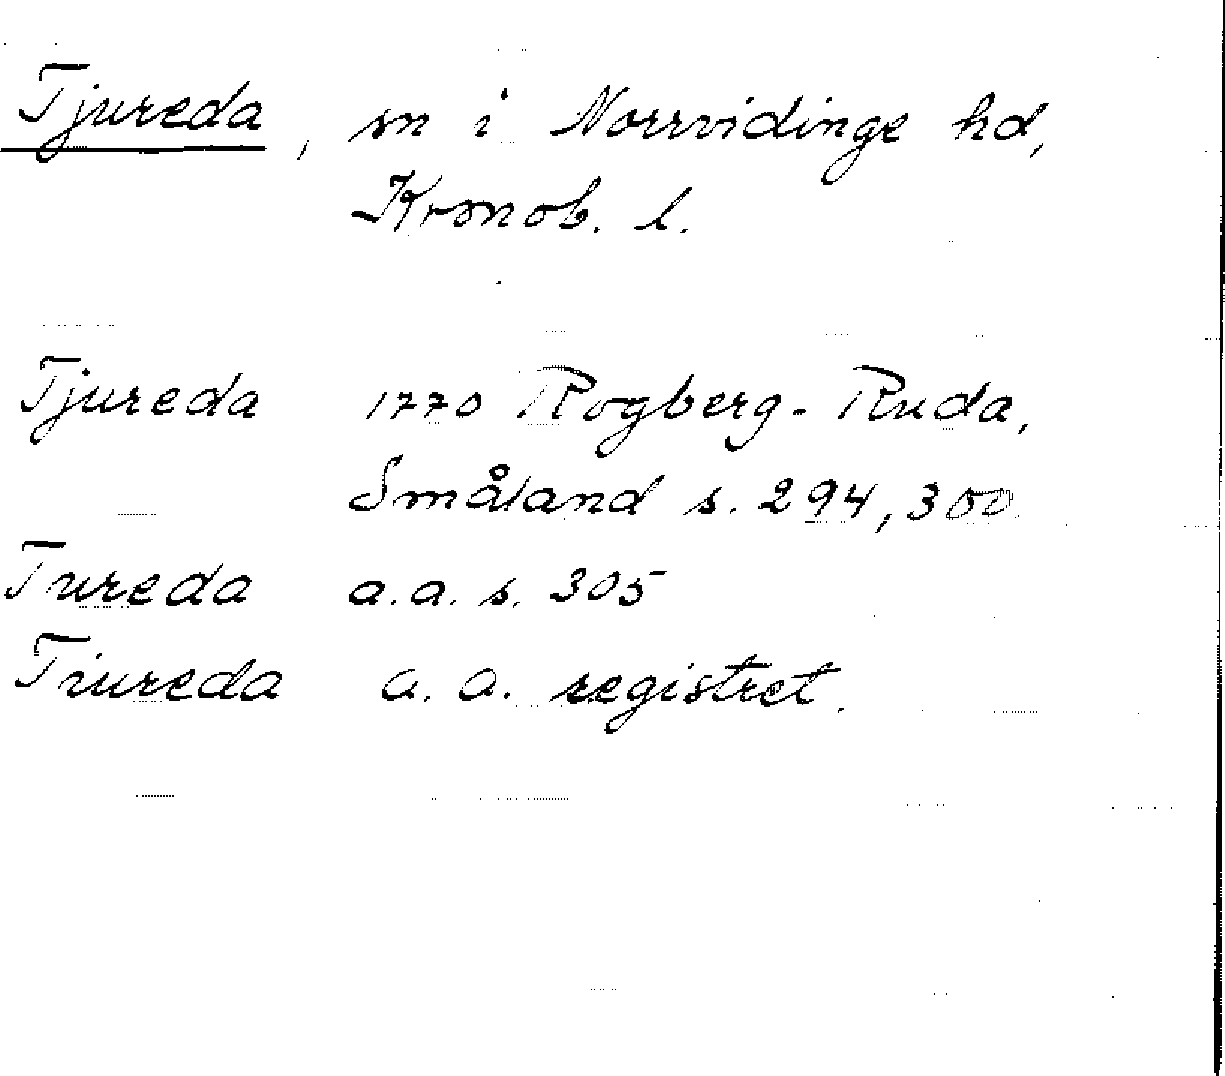 Tjureda, sn i Norrvidinge hd,
Kronob. l.
Tjureda 1770 Rogberg-Ruda,
Småland s. 294, 300
Tureda a.a. s. 305
Tiureda a.a. registret.